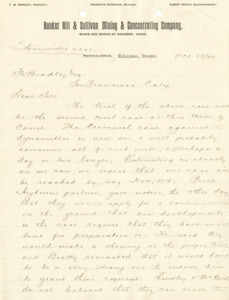 F. W. BRADLEY, PRESIDENT. FREDERICK BURBIDGE, MANAGER. ALBERT BURCH, SUPERINTENDENT.
Bunker Hill & Sullivan Mining & Concentrating Company,
MINES AND WORKS AT WARDNER, IDAHO.
case. KELLOGG, IDAHO,
F. W. Bradley, Esq.
San Francisco, Calif.
Dear Sir:
The trial of the above case will
be the second civil case at this term of
Court. The Criminal case against a
is now on, & will probably
consume all of next week, perhaps a
day or two longer. Estimating as closely
as we can, we expect that our case will
be reached by
Heyburn's partner gave notice the other day
that they would apply for a continuance
on the ground that new developments
in the case require that they have more
time for preparation. He said they
would make a showing at the proper time
and Beatty remarked that it would have
to be a very strong one to induce him
to grant their request.
do not believe that they can make the